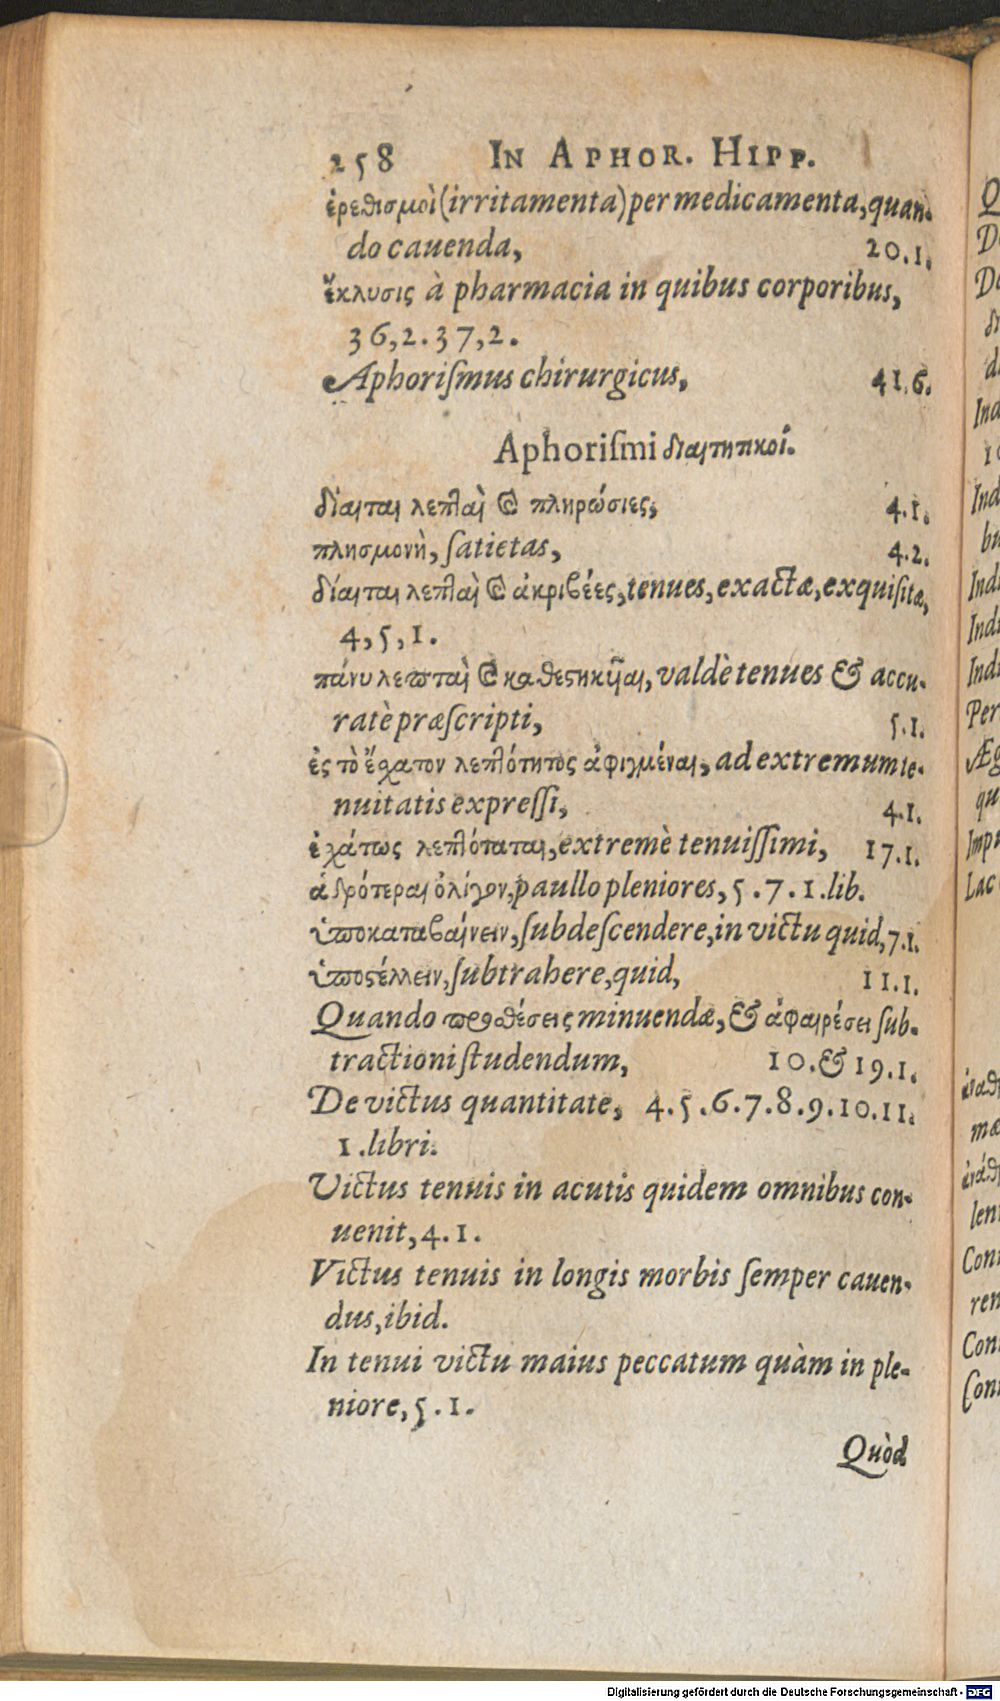 258 IN APHOR. HIPP.
ἐρεθισμοὶ (irritamenta) per medicamenta, quan-
do cauenda, 20.1.
ἔκλυσις à pharmacia in quibus corporibus,
36,2.37,2.
Aphoriſmus chirurgicus, 41.6.
Aphoriſmi διαιτητικοί.
δίαιται λεπταὶ & πληρώσιες, 4.1.
πλησμονὴ, ſatietas, 4.2.
δίαιται λεπταὶ & ἀκριβέες, tenues, exactæ, exquiſitæ,
4,5,1.
πάνυ λεπταὶ & καθεστηκῆαι, valdè tenues & accu-
ratè præſcripti, 5.1.
ἐς τὸ ἔσχατον λεπτότητος ἀφιγμέναι, ad extremum te-
nuitatis expreſſi, 4.1.
ἐσχάτως λεπτόταται, extremè tenuiſſimi, 17.1.
ἁδρότεραι ὀλίγον, paullo pleniores, 5.7.1.lib.
ὑποκαταβαίνειν, ſubdeſcendere, in victu quid, 7.1.
ὑποστέλλειν, ſubtrahere, quid, 11.1.
Quando προσθέσεις minuendæ, & ἀφαιρέσει ſub-
tractioni ſtudendum, 10.& 19.1.
De victus quantitate, 4.5.6.7.8.9.10.11.
1.libri.
Victus tenuis in acutis quidem omnibus con-
uenit, 4.1.
Victus tenuis in longis morbis ſemper cauen-
dus, ibid.
In tenui victu maius peccatum quàm in ple-
niore, 5.1.
Quòd
Q
De
De
Ind
10
Ind
bu
Indi
Indi
Indi
Per
Æg
qu
Impu
Lac
mæ
len
Con
ren
Con
Con
Digitalisierung gefördert durch die Deutsche Forschungsgemeinschaft - DFG